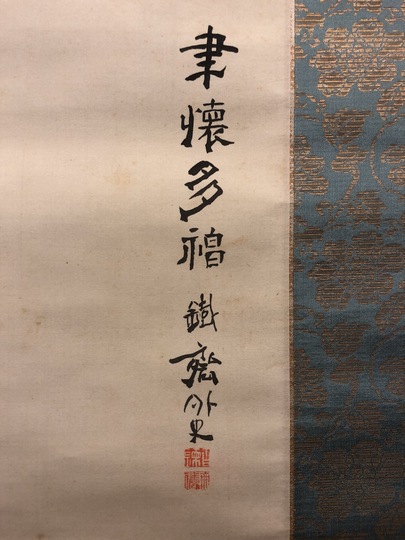 聿懷多福 鐵齋外史